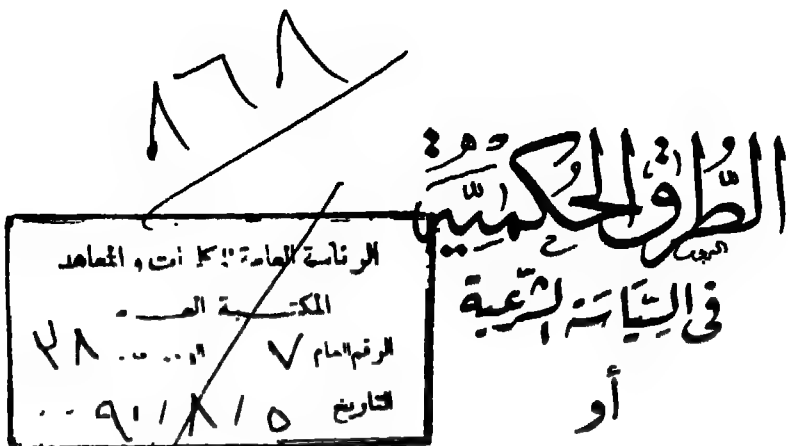 ٨٦٨
الطُّرُق الحُكميَّة
في السِّيَاسَة الشَّرعية
أو
الرئاسة العامة للكليات والمعاهد
المكتبة
الرقم العام ٧
التاريخ ٥ / ٨ / ٩١